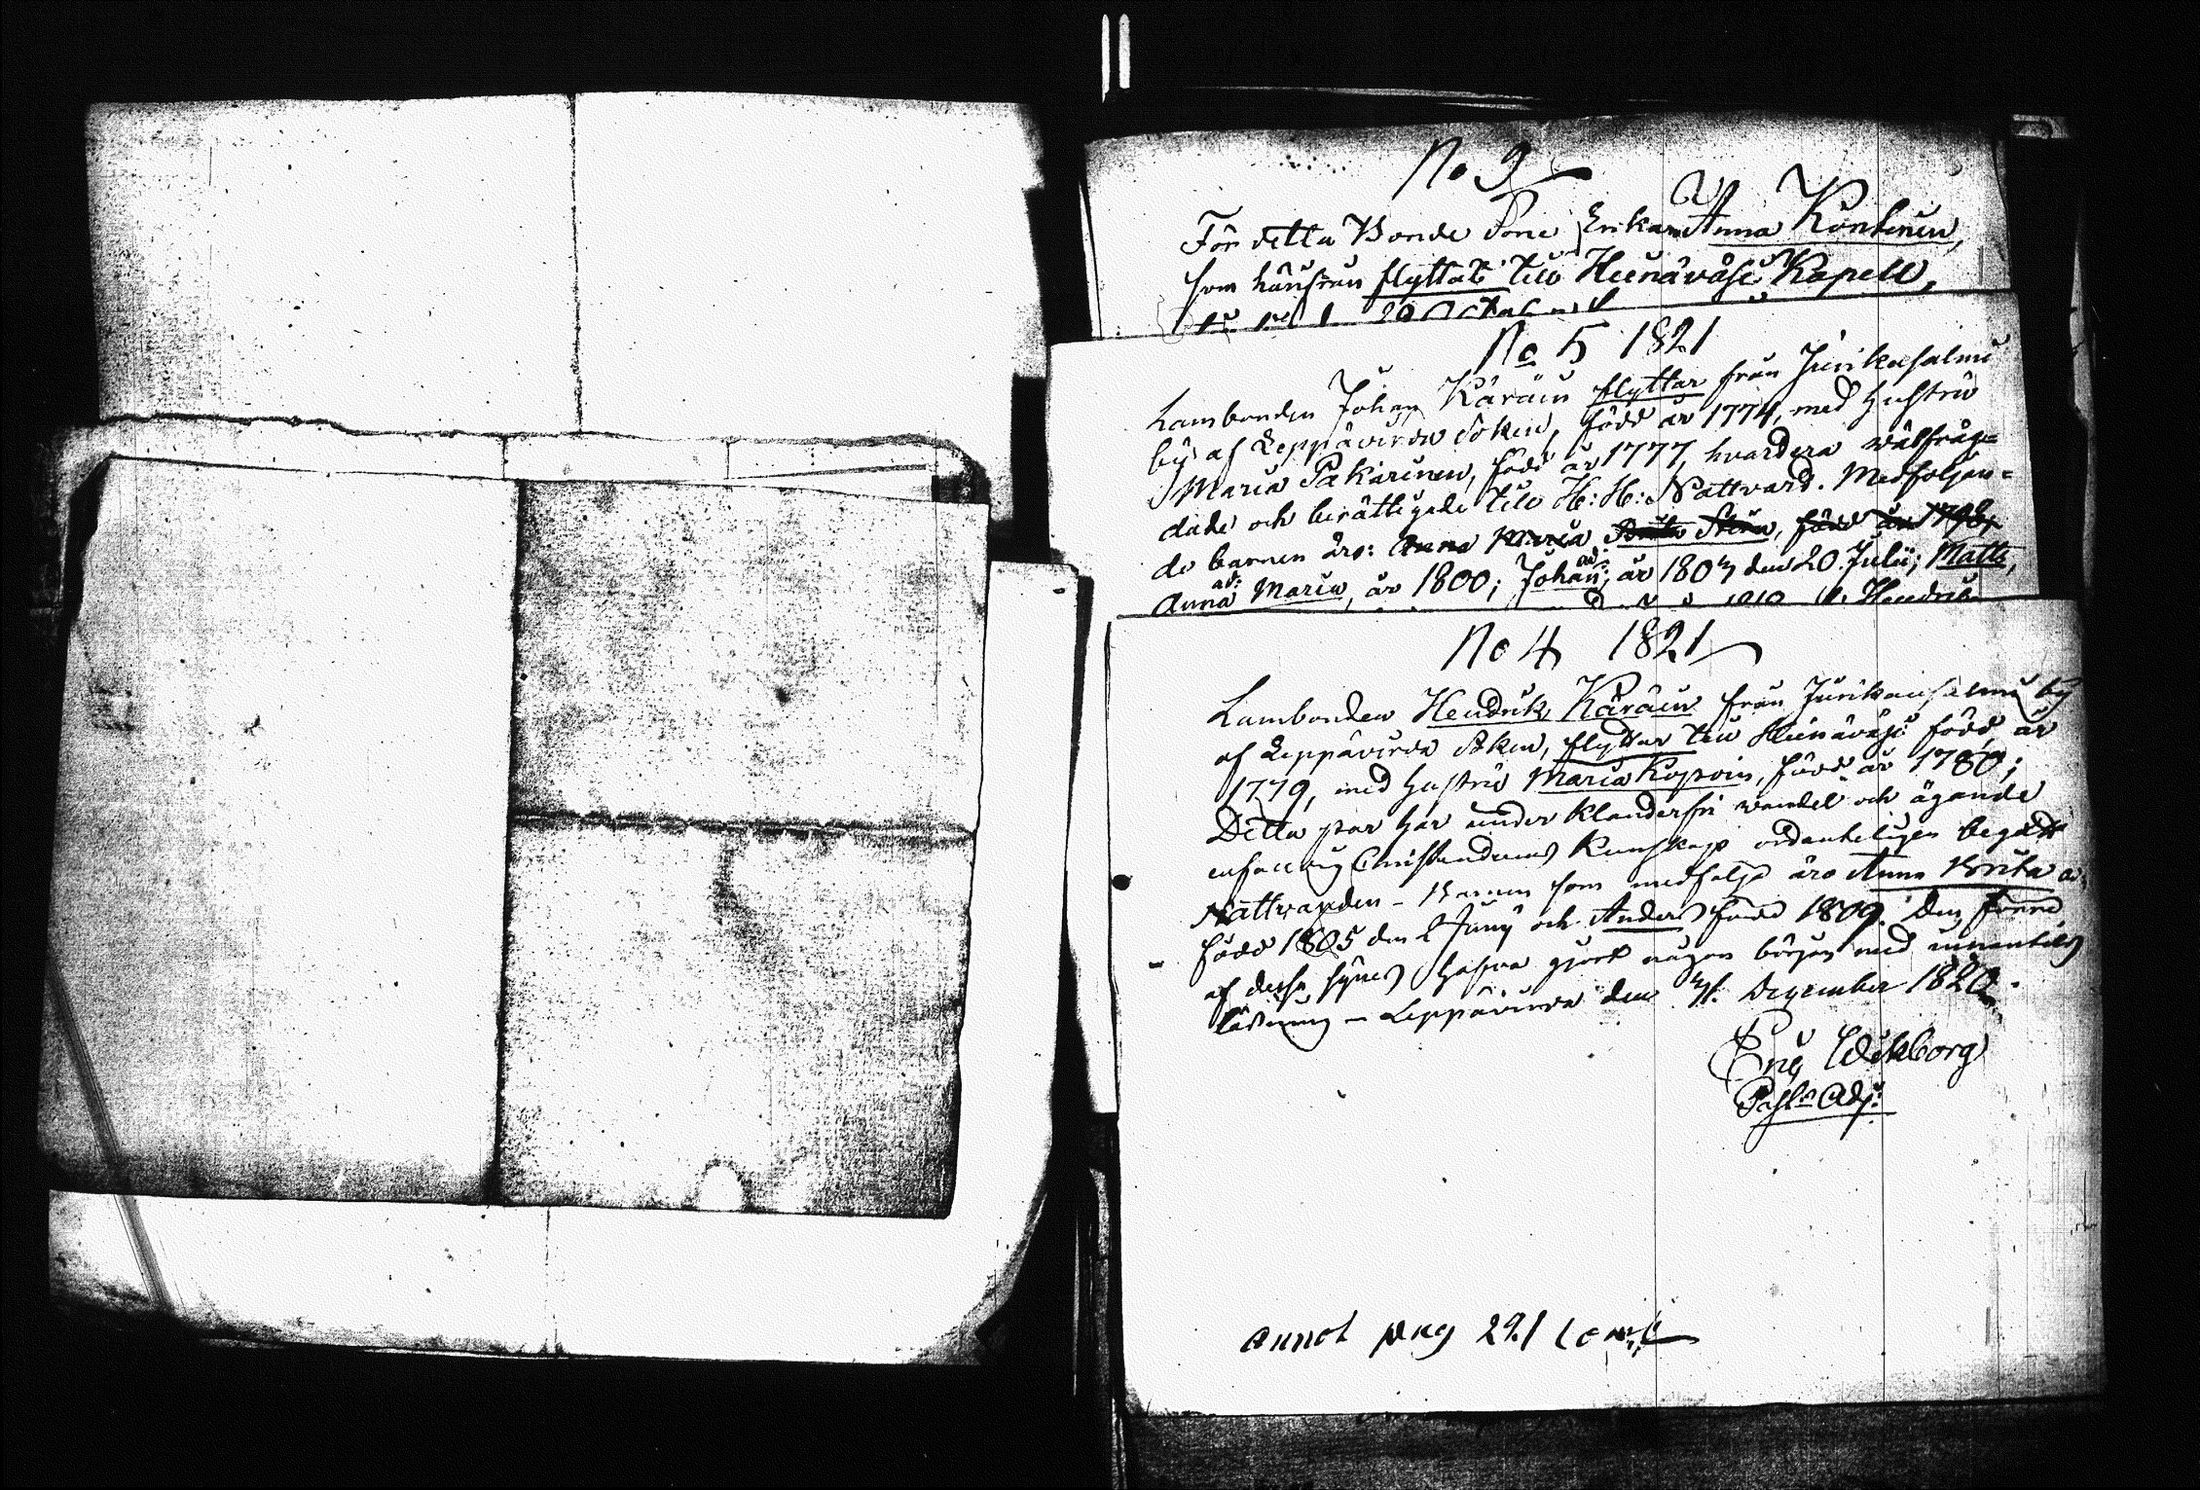 No 9
För detta Bonde Sone Enkan Anna Kontinen,
som härifrån flyttat till Heinäväsi Kapell,
No 5 1821
Lambonden Johan Käräin flyttar från Jurikansalmi
by af Leppävirda Sokn, född år 1774, med hustru
Maria Pakarinen, född år 1777, hvardera wälfräg=
dade och berättigade till H: H: Nattvard. Medföljan=
de barnen äro: Anna Maria Brita Stina, född år 1798,
Anna Maria, år 1800; Johan, år 1803 den 20 Julii; Matts,
Hendric
No 4 1821
Lambonden Hendrik Käräin från Jurikansalmi by
af Leppävirda Sokn, flyttar till Heinäväsi född, år
1779, med hustru Maria Kopoin, född år 1780;
Detta par har under klanderfri wandel och ägande
enfaldig Christendoms Kunskap ordenteligen begådt
Nattvarden - Barnen som medfölja äro Anna Brita
född 1805 den 2 Juny och Anders född 1809. Den förre
af dessa synes hafva gjort någon början med innantils
läsning - Leppävirda den 31. December 1820.
Eric Wikborg
Past: Adj:
annot pag 291